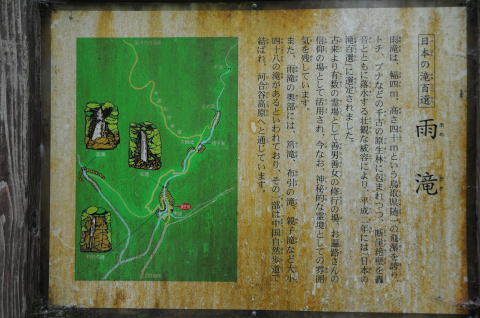 日本の滝百選
雨滝
雨滝は、幅四m、高さ四十mという鳥取県随一の飛瀑を誇り、
トチ、ブナなどの千古の原生林に包まれつつ、断崖絶壁を轟
音とともに落水する壮観な威容により、平成二年には「日本の
滝百選」に選定されました。
古来より有数の霊場として善男善女の修行の場、お遍路さんの
信仰の場として活用され、今なお、神秘的な霊境としての雰囲
気を残しています。
また、雨滝の奥部には、筥滝、布引の滝、親子滝など大小
四十八の滝があるといわれており、その一部は中国自然歩道で
結ばれ、河合谷高原へと通じています。